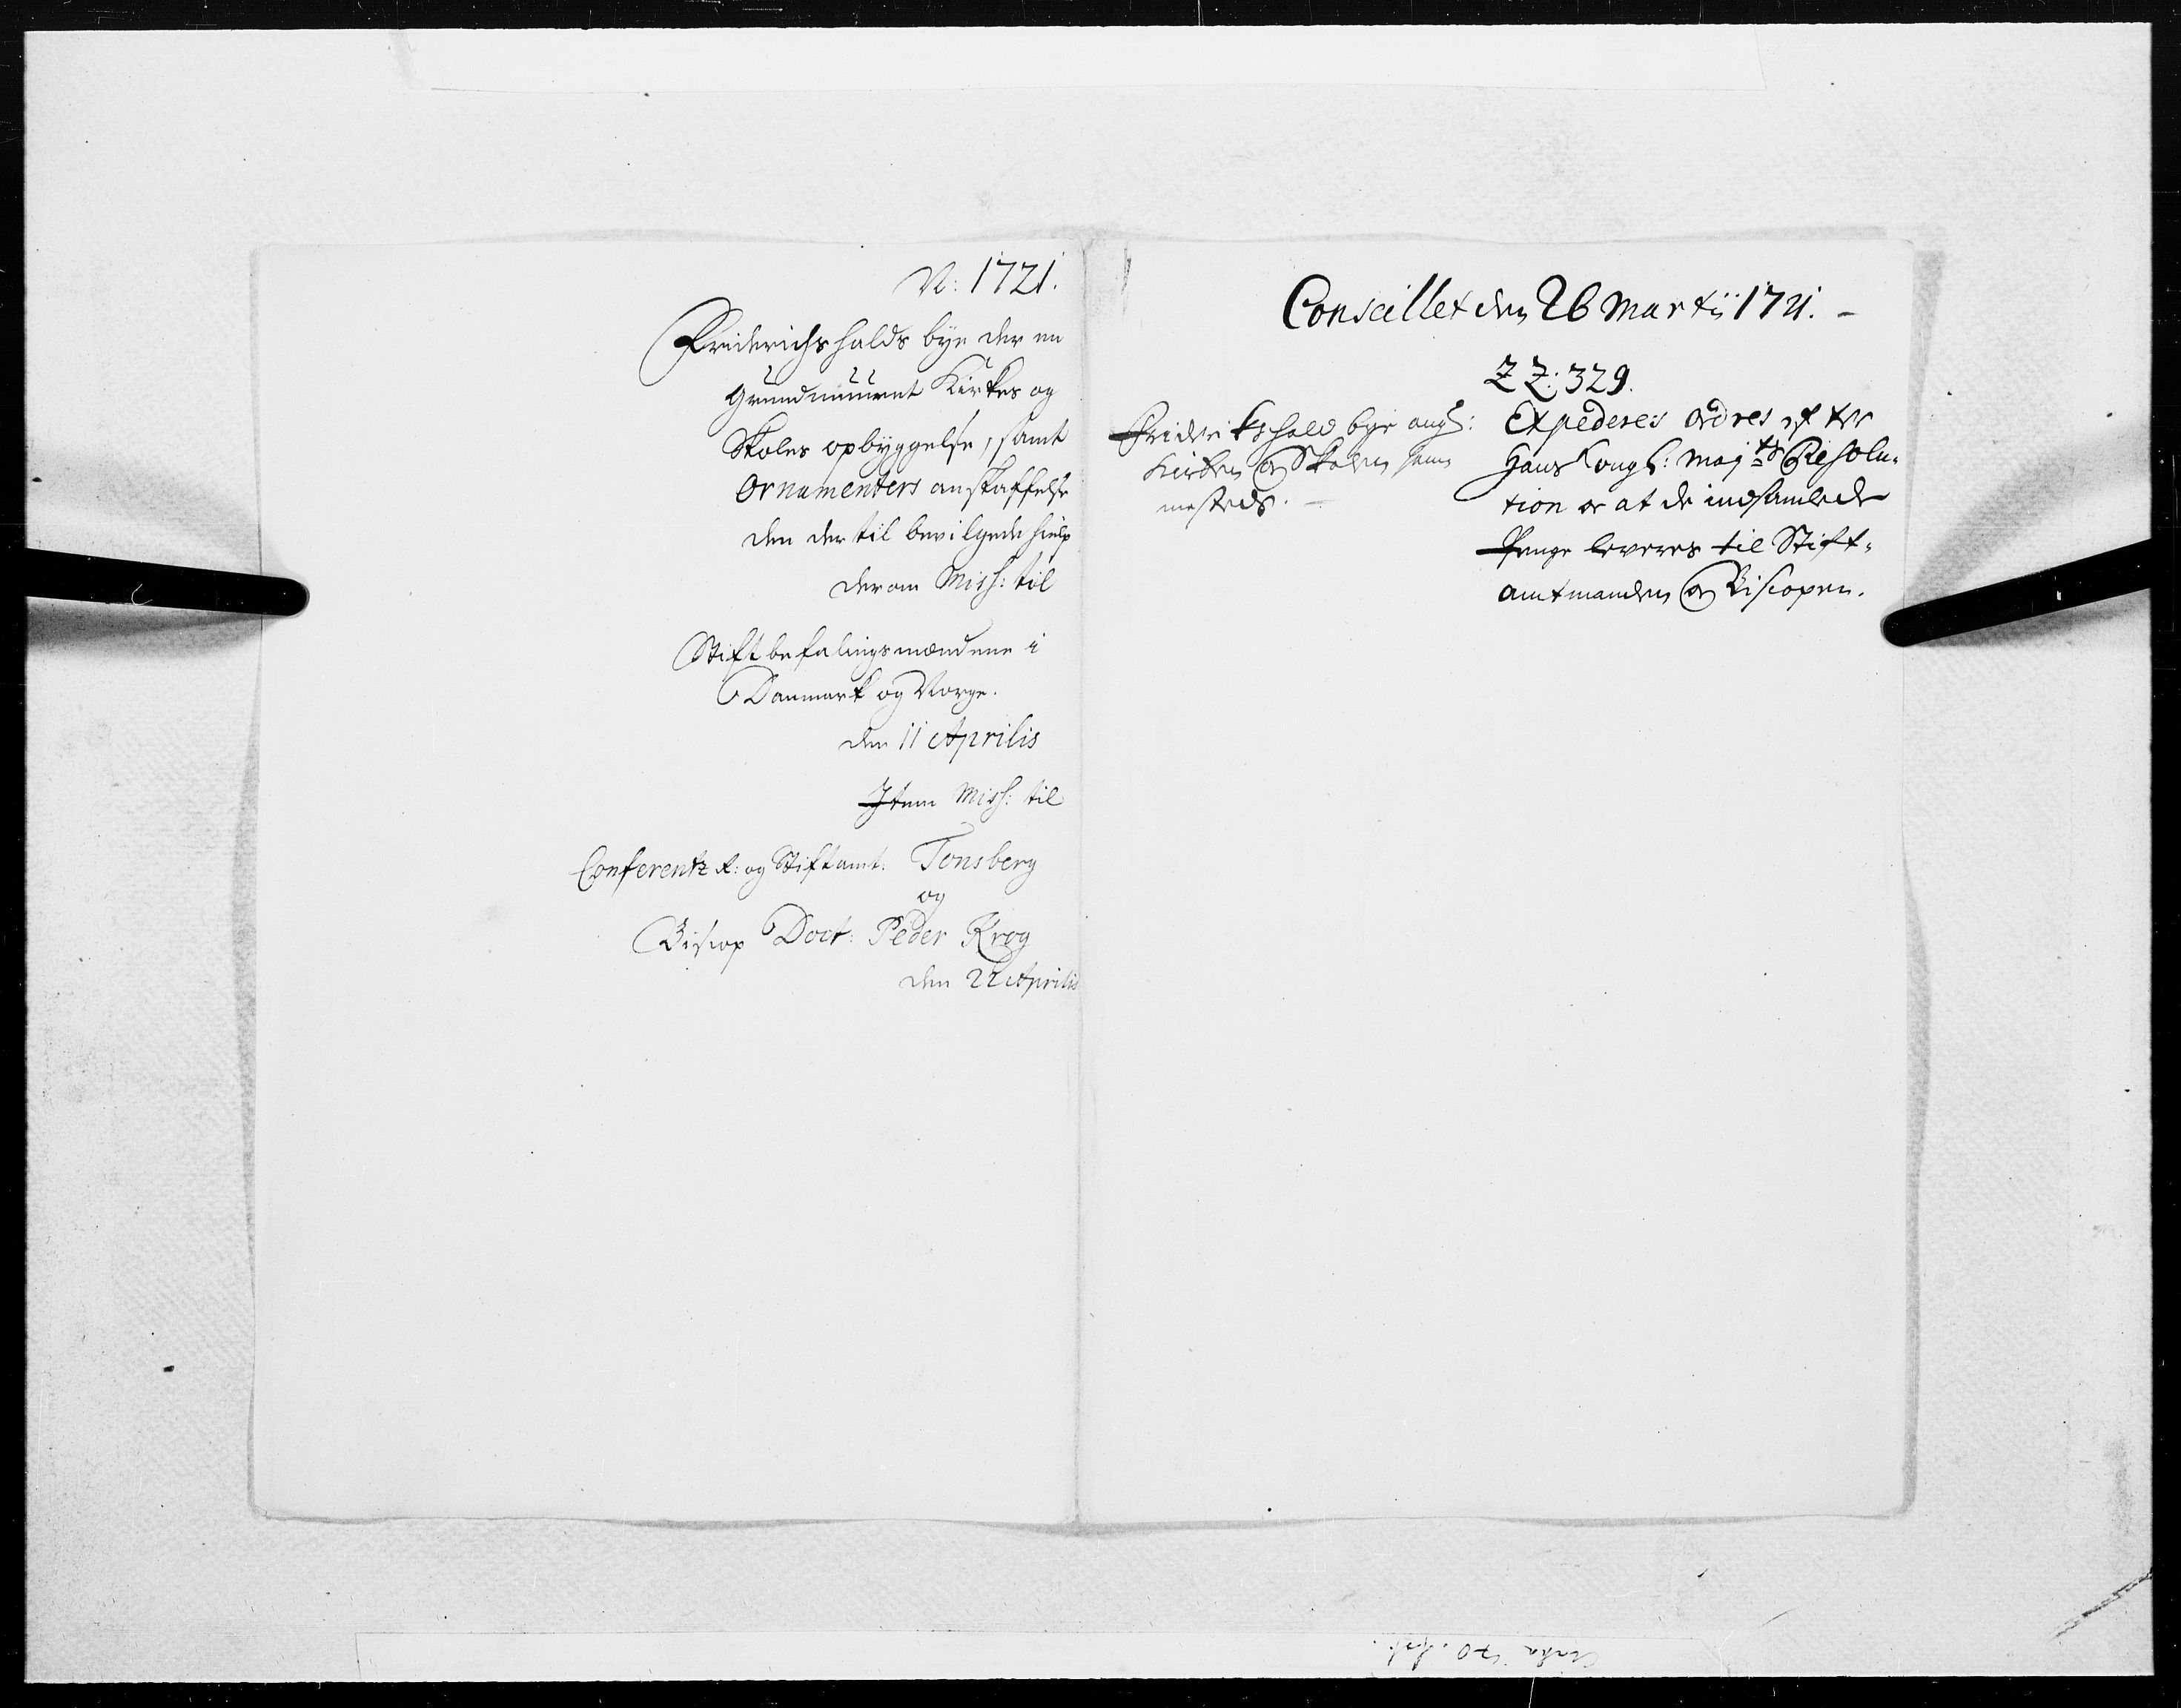 N: 1721.
Friderichshalds bye der en
Grundmuuret Kirkes og
Skoles opbyggelse, samt
Ornamenters anskaffelse
den der til bevilgede hielp
derom Miss: til
Stiftbefalingsmændene i
Danmark og Norge.
den 11 Aprilis
Item Miss: til
Conferentz R: og Stiftamt: Tonsberg
og
Biscop Doct: Peder Krog
den 22 Aprilis
Conseillet den 26 Martii 1721. -
ZZ: 329.
Friderikshald bye ang:
Kirken og Skolen sam
mesteds. -
Expederes ordres efter
Hans Kongl: Maj:ts Resolu-
tion or at de indsamlede
Penge leveres til Stift-
amtmanden og Biscopen.